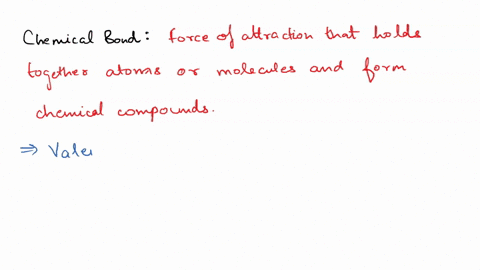 Chemical Bond: Force of attraction that holds
together atoms or molecules and form
chemical compounds.
⇒ Vale